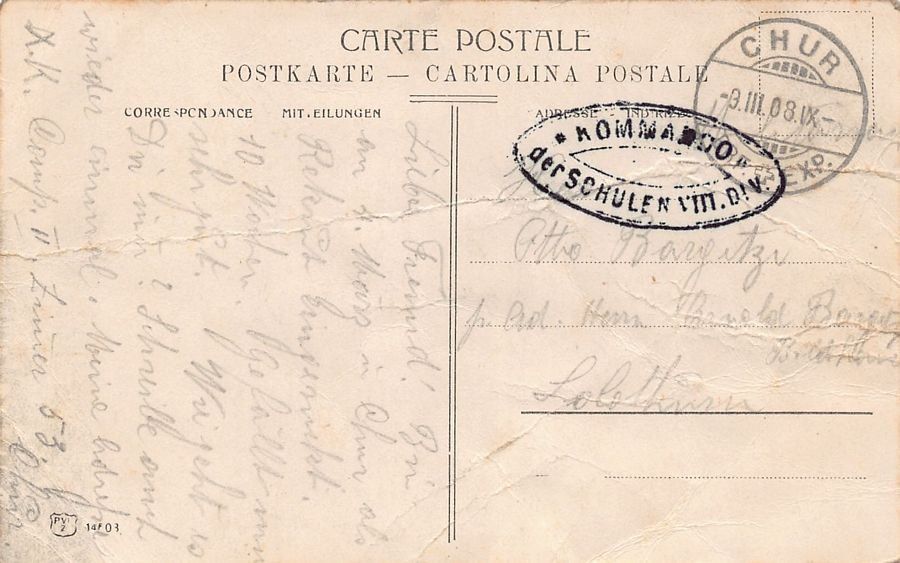 CARTE POSTALE
POSTKARTE — CARTOLINA POSTALE
CORRESPONDANCE MITTEILUNGEN
ADRESSE INDIRIZZO
CHUR
-9.III.08.IX-
EXP.
"KOMMANDO"
der SCHULEN VIII. DIV.
Otto Bargetzi
p. Ad. Herrn Arnold
Solothurn
Lieber Freund! Bin
am 4. März i Chur als
Rekrut eingerückt.
10 Wochen. Gefällt mir
sehr gut. Wie geht es
Dir immer? Schreibe amel
wieder einmal. Meine Adresse
R.K. Comp. II, Zimer 53
Chur.
PVK Z 14803